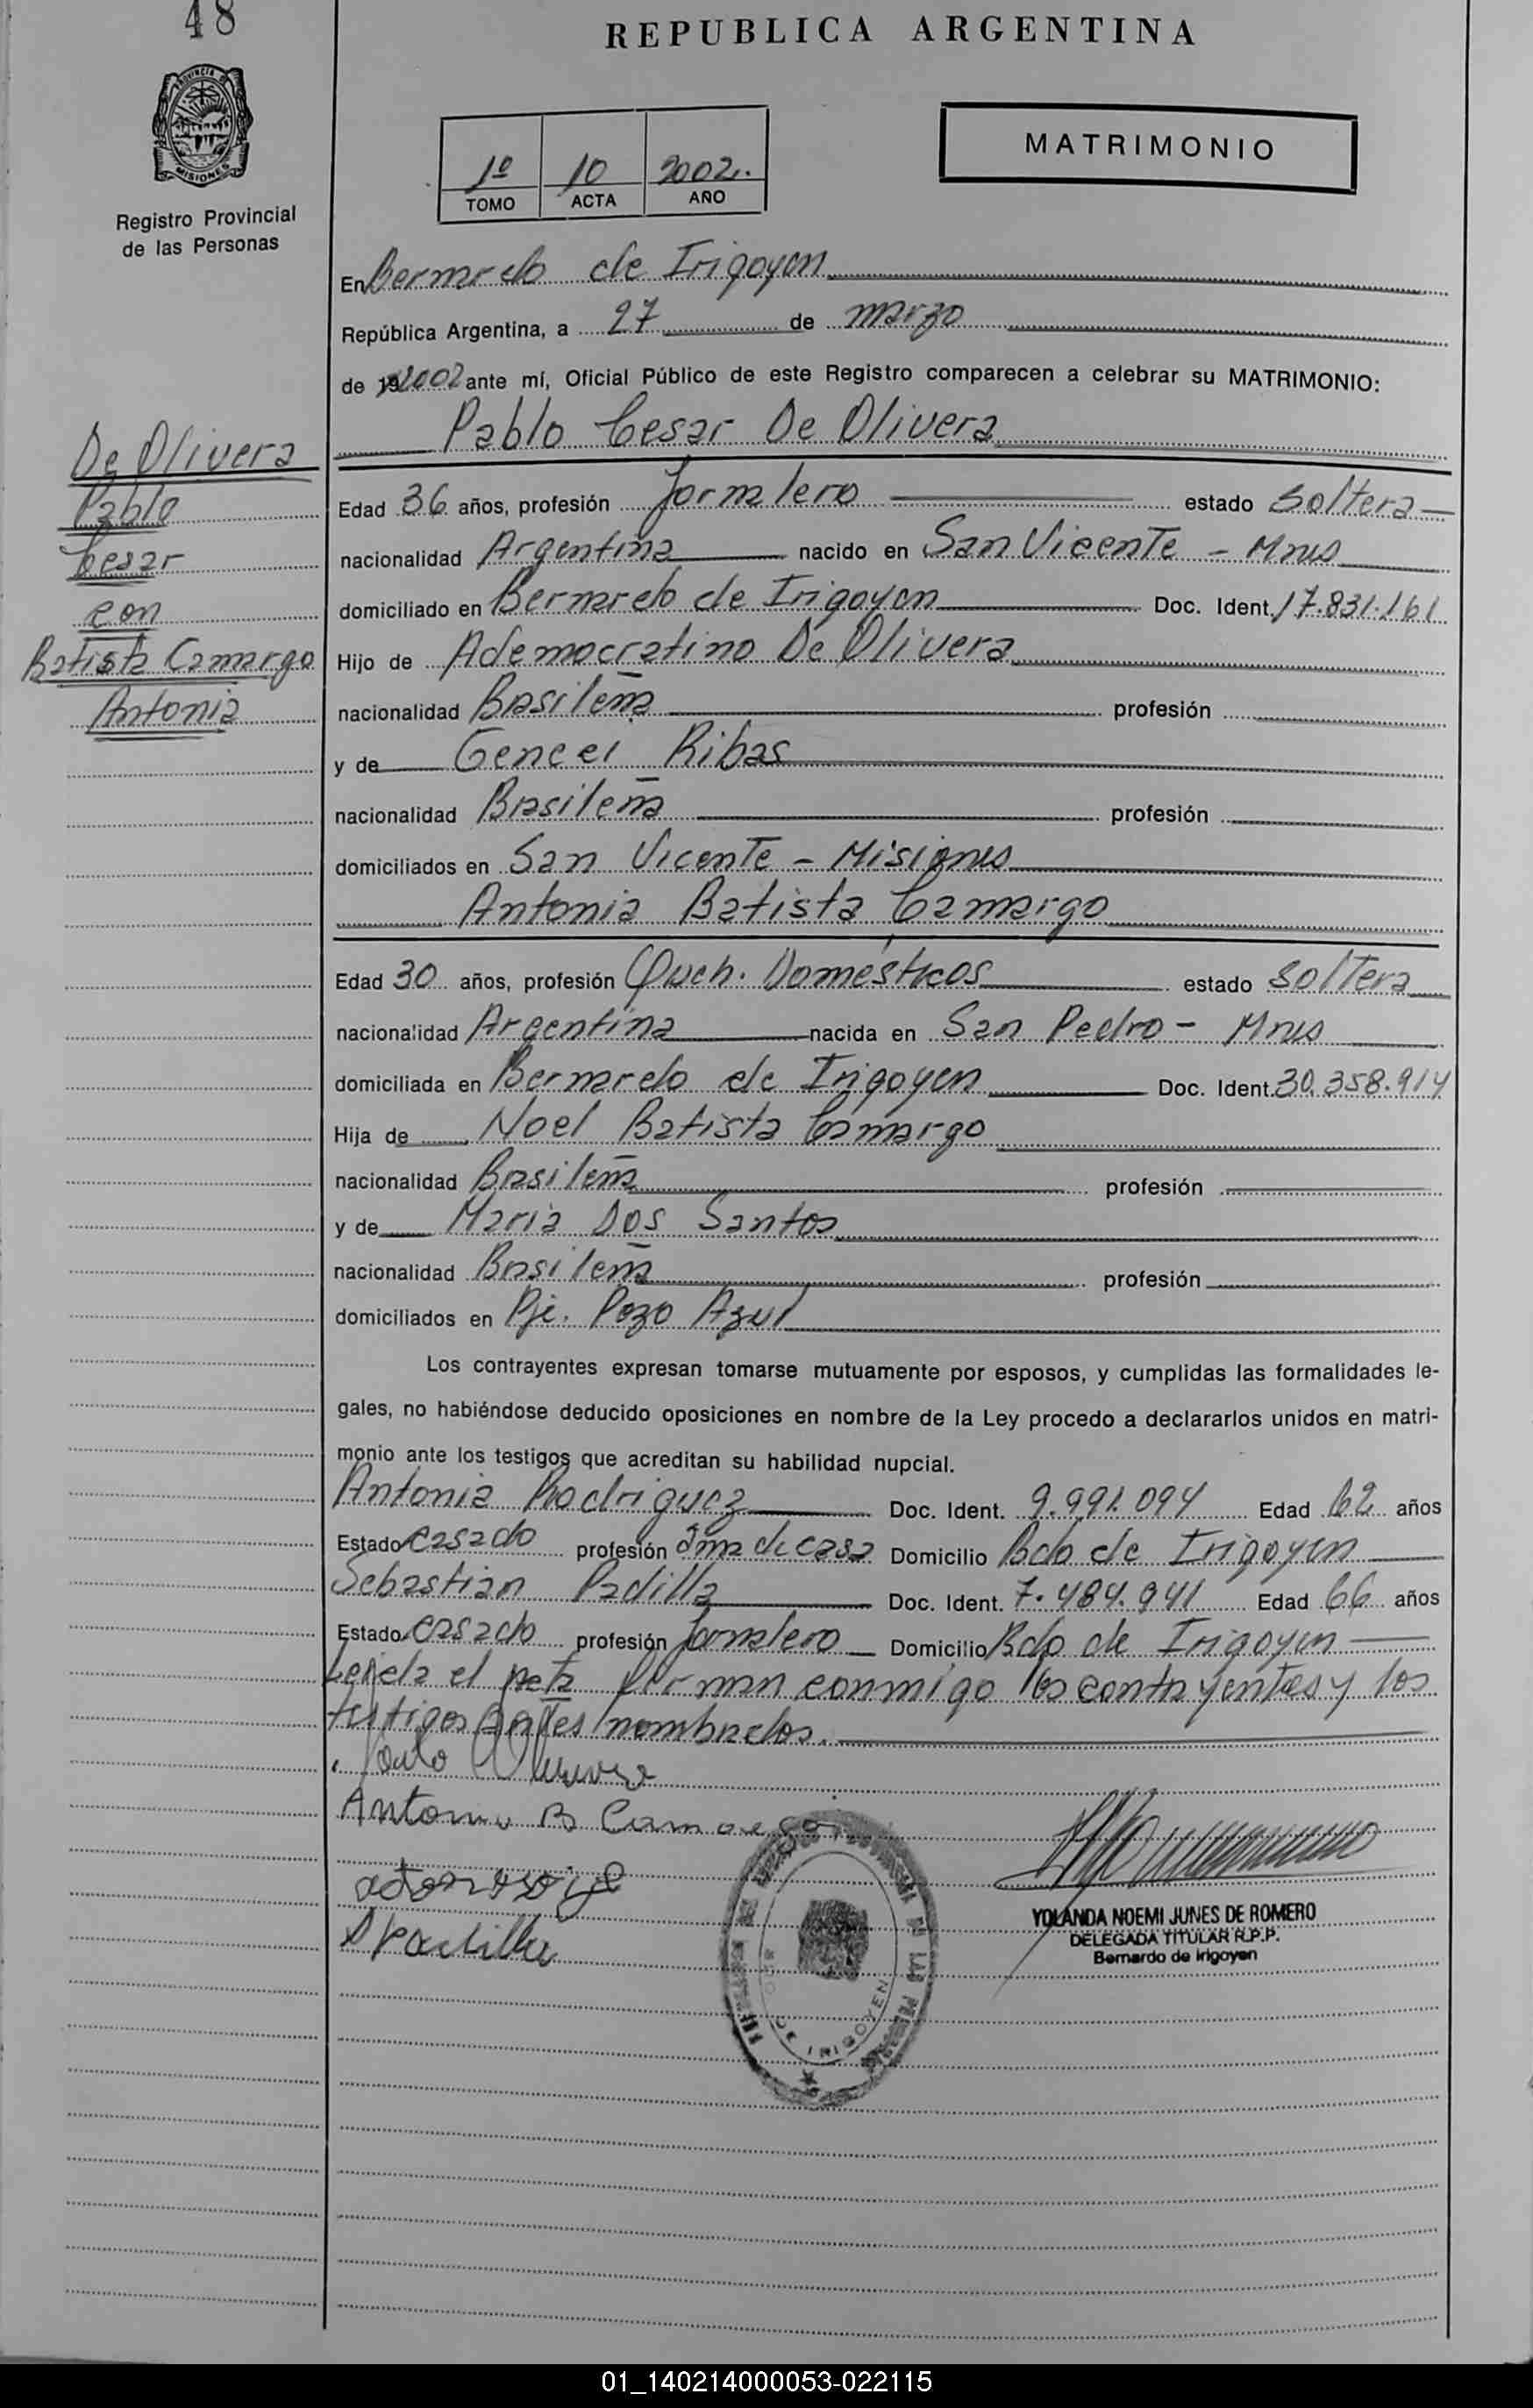 48
REPUBLICA ARGENTINA
MISIONES
Registro Provincial
de las Personas
1º 10 2002.
TOMO ACTA AÑO
MATRIMONIO
En Bernardo de Irigoyen
República Argentina, a 27 de marzo
de 2002 ante mí, Oficial Público de este Registro comparecen a celebrar su MATRIMONIO:
Pablo Cesar De Olivera
De Olivera
Pablo
Cesar
con
Batista Camargo
Antonia
Edad 36 años, profesión Jornalero estado Soltera
nacionalidad Argentina nacido en San Vicente - Mnes
domiciliado en Bernardo de Irigoyen Doc. Ident. 17.831.161
Hijo de Ademocratino De Olivera
nacionalidad Brasileña profesión
y de Ribas
nacionalidad Brasileña profesión
domiciliados en San Vicente - Misiones
Antonia Batista Camargo
Edad 30 años, profesión Queh. Domésticos estado Soltera
nacionalidad Argentina nacida en San Pedro - Mnes
domiciliada en Bernardo de Irigoyen Doc. Ident. 30.358.914
Hija de Noel Batista Camargo
nacionalidad Brasileña profesión
y de Maria Dos Santos
nacionalidad Brasileña profesión
domiciliados en Pje. Pozo Azul
Los contrayentes expresan tomarse mutuamente por esposos, y cumplidas las formalidades le-
gales, no habiéndose deducido oposiciones en nombre de la Ley procedo a declararlos unidos en matri-
monio ante los testigos que acreditan su habilidad nupcial.
Antonia Rodriguez Doc. Ident. 9.991.094 Edad 62 años
Estado casado profesión ama de casa Domicilio Bdo de Irigoyen
Sebastian Padilla Doc. Ident. 7.484.941 Edad 66 años
Estado casado profesión Jornalero Domicilio Bdo de Irigoyen
Leida el acta firman conmigo los contrayentes y los
testigos antes nombrados.
Antonia B Camargo
Padilla
YOLANDA NOEMI JUNES DE ROMERO
DELEGADA TITULAR R.P.P.
Bernardo de Irigoyen
DE IRIGOYEN
01_140214000053-022115